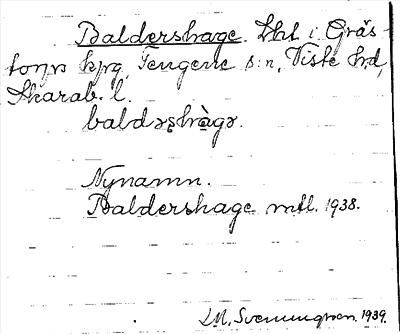 Baldershage. Lht i Gräs-
torps kpg, Tengene s:n, Viste hd,
Skarab. l.
baldəʂhàgə.
Nynamn.
Baldershage mtl. 1938.
I.M. Svenningson. 1939.